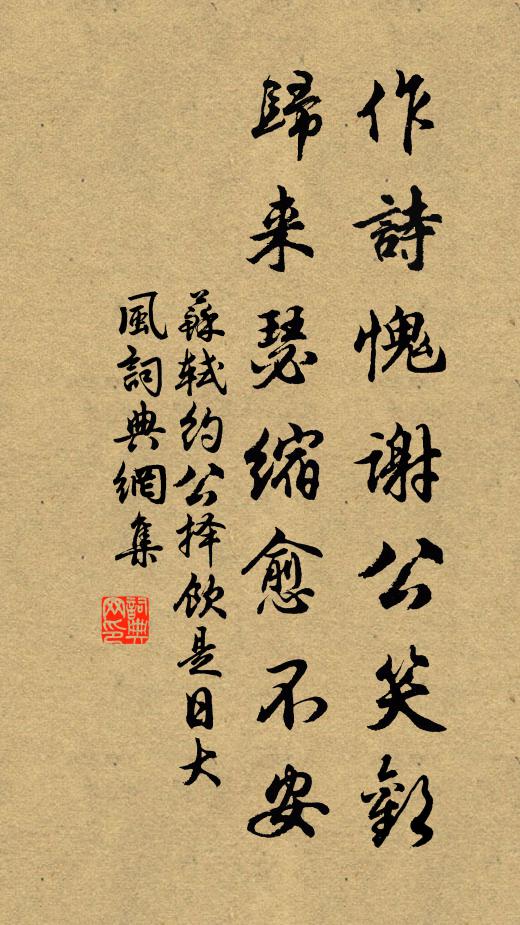 作詩愧謝公笑歡
歸来瑟縮愈不安
蘇軾約公择飲是日大
風詞典網集
詞典
网印